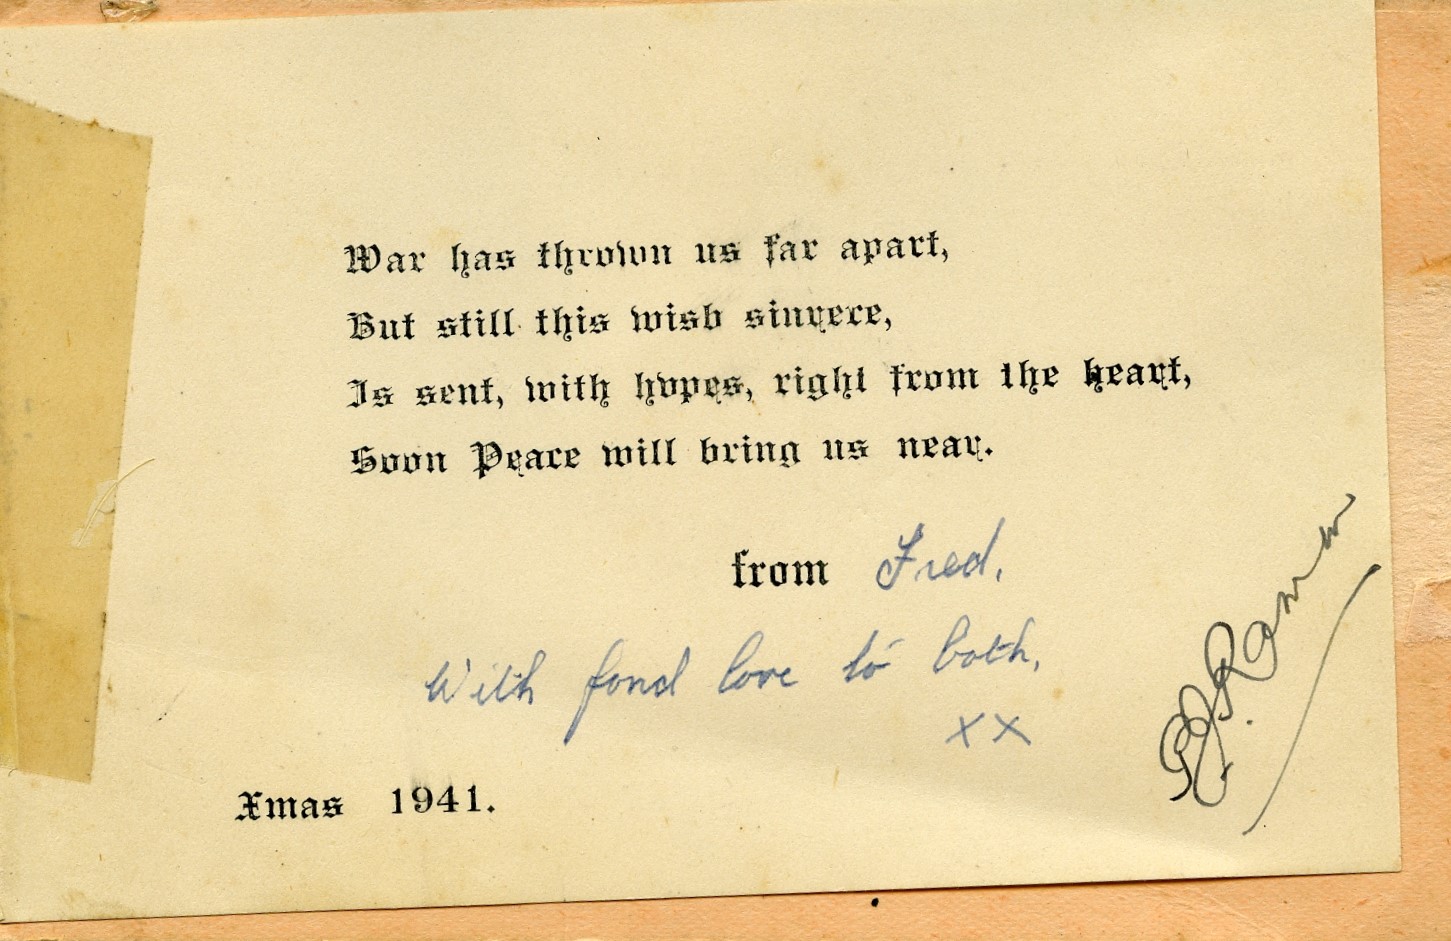 War has thrown us far apart,
But still this wish sincere,
Is sent, with hopes, right from the heart,
Soon Peace will bring us near.
from Fred.
With fond love to both.
x x
Xmas 1941.